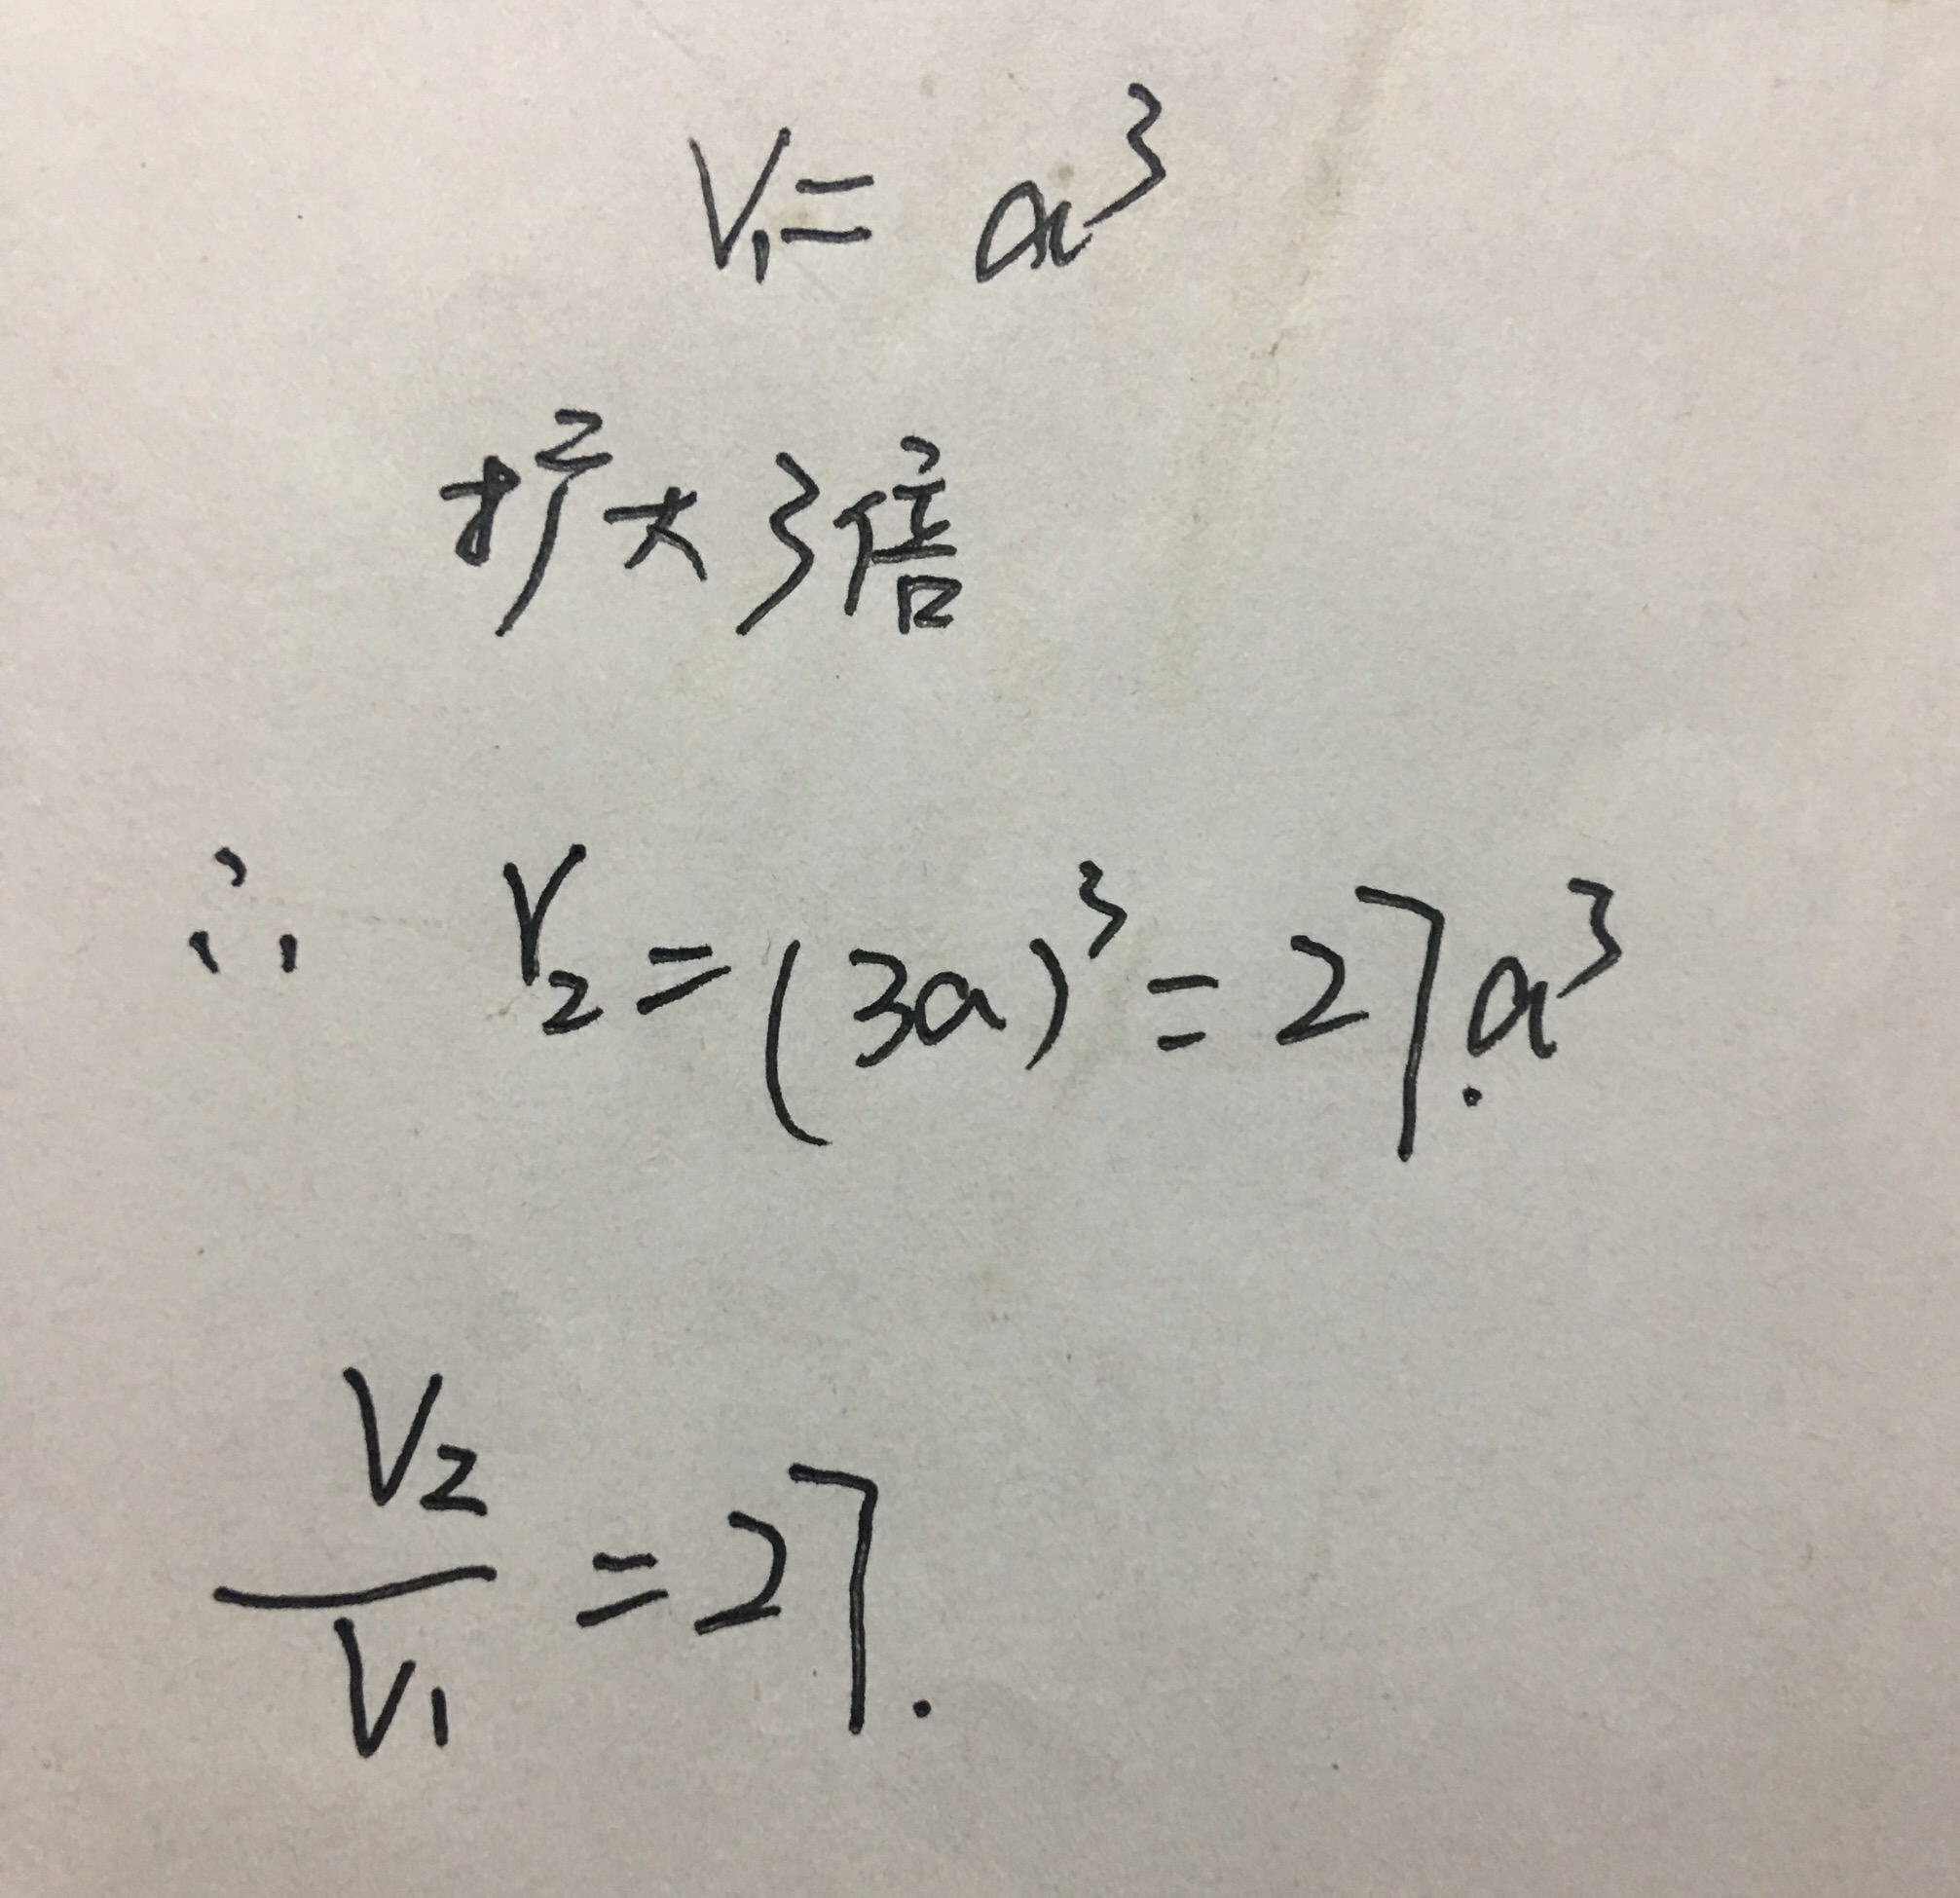 V₁= a³
扩大3倍
∴ V₂=(3a)³=27.a³
V₂/V₁=27.